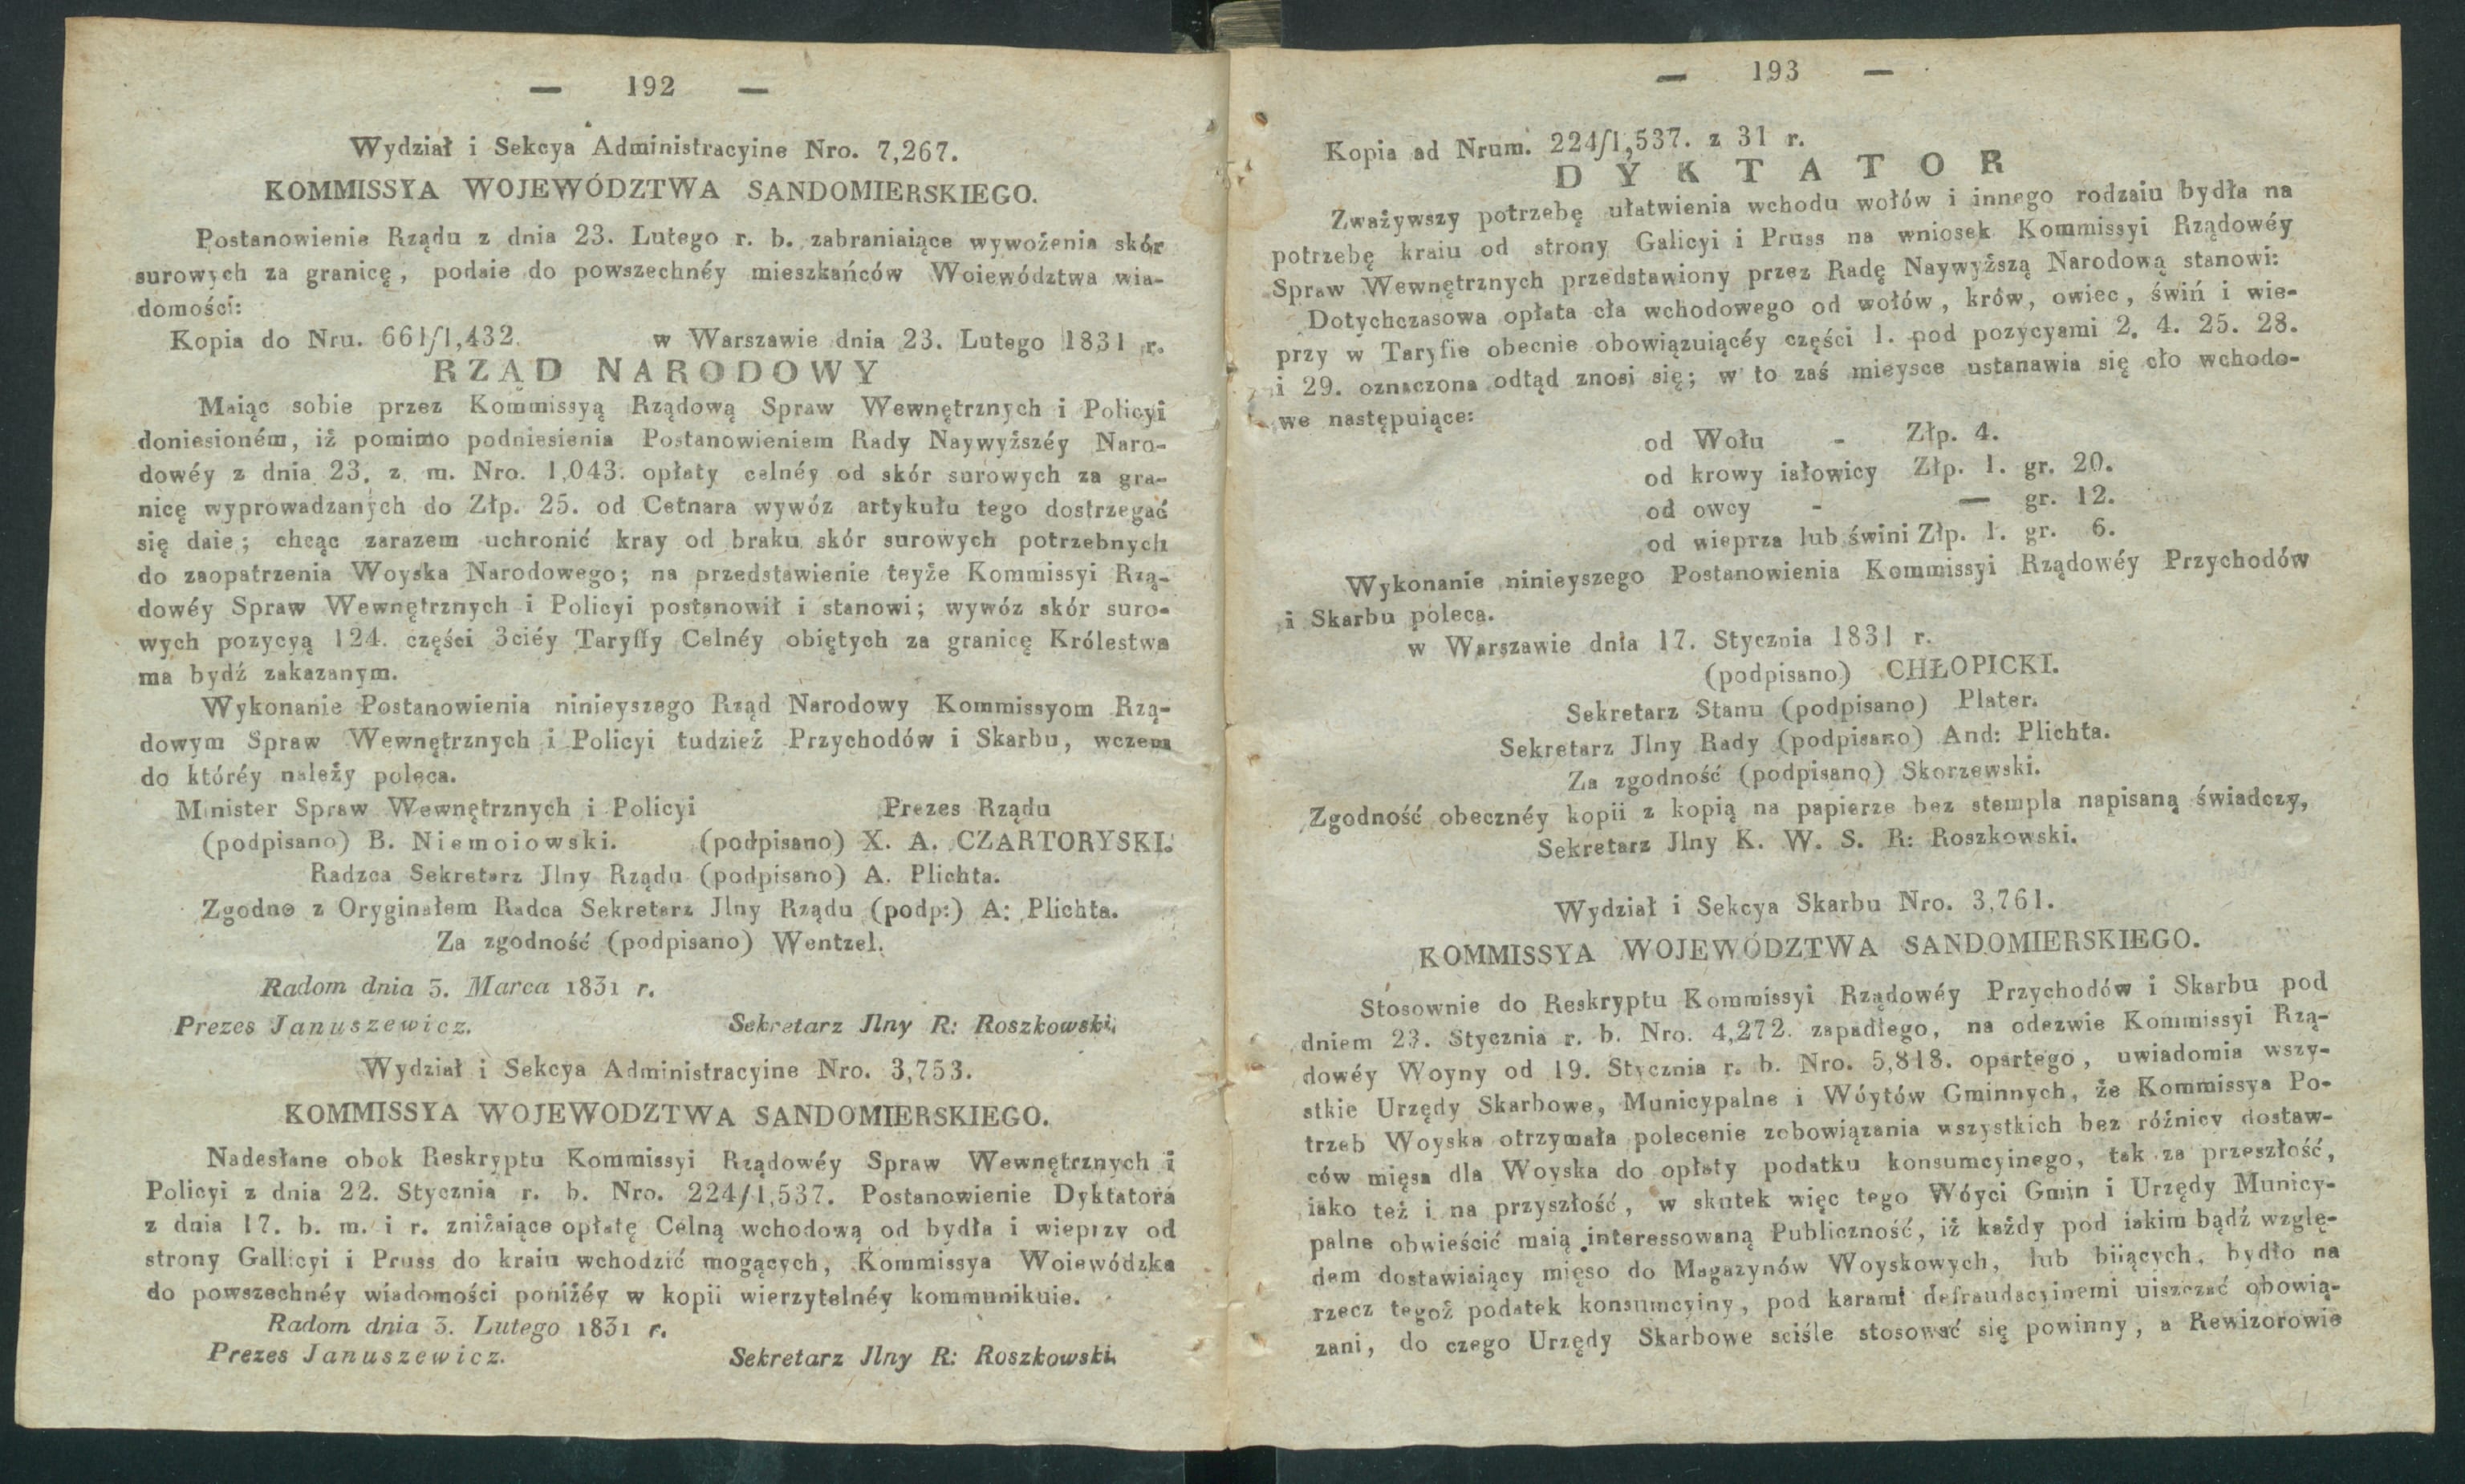 — 192 —
Wydział i Sekcya Administracyine Nro. 7,267.
KOMMISSYA WOJEWÓDZTWA SANDOMIERSKIEGO.
Postanowienie Rządu z dnia 23. Lutego r. b. zabraniaiące wywożenia skór
surowych za granicę, podaie do powszechnéy mieszkańców Woiewództwa wia-
domości:
Kopia do Nru. 661/1,432. w Warszawie dnia 23. Lutego 1831 r.
RZĄD NARODOWY
Maiąc sobie przez Kommissyą Rządową Spraw Wewnętrznych i Policyi
doniesioném, iż pomimo podniesienia Postanowieniem Rady Naywyższéy Naro-
dowéy z dnia 23. z. m. Nro. 1,043. opłaty celnéy od skór surowych za gra-
nicę wyprowadzanych do Złp. 25. od Cetnara wywóz artykułu tego dostrzegać
się daie; chcąc zarazem uchronić kray od braku skór surowych potrzebnych
do zaopatrzenia Woyska Narodowego; na przedstawienie teyże Kommissyi Rzą-
dowéy Spraw Wewnętrznych i Policyi postanowił i stanowi; wywóz skór suro-
wych pozycyą 124. części 3ciéy Taryffy Celnéy obiętych za granicę Królestwa
ma bydź zakazanym.
Wykonanie Postanowienia ninieyszego Rząd Narodowy Kommissyom Rzą-
dowym Spraw Wewnętrznych i Policyi tudzież Przychodów i Skarbu, wczem
do któréy należy poleca.
Minister Spraw Wewnętrznych i Policyi Prezes Rządu
(podpisano) B. Niemoiowski. (podpisano) X. A. CZARTORYSKI.
Radzca Sekretarz Jlny Rządu (podpisano) A. Plichta.
Zgodne z Oryginałem Radca Sekretarz Jlny Rządu (podp:) A: Plichta.
Za zgodność (podpisano) Wentzel.
Radom dnia 3. Marca 1831 r.
Prezes Januszewicz. Sekretarz Jlny R: Roszkowski.
Wydział i Sekcya Administracyine Nro. 3,753.
KOMMISSYA WOJEWODZTWA SANDOMIERSKIEGO.
Nadesłane obok Reskryptu Kommissyi Rządowéy Spraw Wewnętrznych i
Policyi z dnia 22. Stycznia r. b. Nro. 224/1,537. Postanowienie Dyktatora
z dnia 17. b. m. i r. zniżaiące opłatę Celną wchodową od bydła i wieprzy od
strony Gallicyi i Pruss do kraiu wchodzić mogących, Kommissya Woiewódzka
do powszechnéy wiadomości poniżéy w kopii wierzytelnéy kommunikuie.
Radom dnia 3. Lutego 1831 r.
Prezes Januszewicz. Sekretarz Jlny R: Roszkowski.
— 193 —
Kopia ad Nrum. 224/1,537. z 31 r.
DYKTATOR
Zważywszy potrzebę ułatwienia wchodu wołów i innego rodzaiu bydła na
potrzebę kraiu od strony Galicyi i Pruss na wniosek Kommissyi Rządowéy
Spraw Wewnętrznych przedstawiony przez Radę Naywyższą Narodową stanowi:
Dotychczasowa opłata cła wchodowego od wołów, krów, owiec, świń i wie-
przy w Taryfie obecnie obowiązuiącéy części 1. pod pozycyami 2. 4. 25. 28.
i 29. oznaczona odtąd znosi się; w to zaś mieysce ustanawia się cło wchodo-
we następuiące:
od Wołu - Złp. 4.
od krowy iałowicy Złp. 1. gr. 20.
od owcy - — gr. 12.
od wieprza lub świni Złp. 1. gr. 6.
Wykonanie ninieyszego Postanowienia Kommissyi Rządowéy Przychodów
i Skarbu poleca.
w Warszawie dnia 17. Stycznia 1831 r.
(podpisano) CHŁOPICKI.
Sekretarz Stanu (podpisano) Plater.
Sekretarz Jlny Rady (podpisano) And: Plichta.
Za zgodność (podpisano) Skorzewski.
Zgodność obecznéy kopii z kopią na papierze bez stempla napisaną świadczy,
Sekretarz Jlny K. W. S. R: Roszkowski.
Wydział i Sekcya Skarbu Nro. 3,761.
KOMMISSYA WOJEWÓDZTWA SANDOMIERSKIEGO.
Stosownie do Reskryptu Kommissyi Rządowéy Przychodów i Skarbu pod
dniem 23. Stycznia r. b. Nro. 4,272. zapadłego, na odezwie Kommissyi Rzą-
dowéy Woyny od 19. Stycznia r. b. Nro. 5,818. opartego, uwiadomia wszy-
stkie Urzędy Skarbowe, Municypalne i Wóytów Gminnych, że Kommissya Po-
trzeb Woyska otrzymała polecenie zobowiązania wszystkich bez różnicy dostaw-
ców mięsa dla Woyska do opłaty podatku konsumcyinego, tak za przeszłość,
iako też i na przyszłość, w skutek więc tego Wóyci Gmin i Urzędy Municy-
palne obwieścić maią interessowaną Publiczność, iż każdy pod iakim bądź wzglę-
dem dostawiaiący mięso do Magazynów Woyskowych, lub biiących, bydło na
rzecz tegoż podatek konsumcyiny, pod karami defraudacyinemi uiszczać obowią-
zani, do czego Urzędy Skarbowe sciśle stosować się powinny, a Rewizorowie